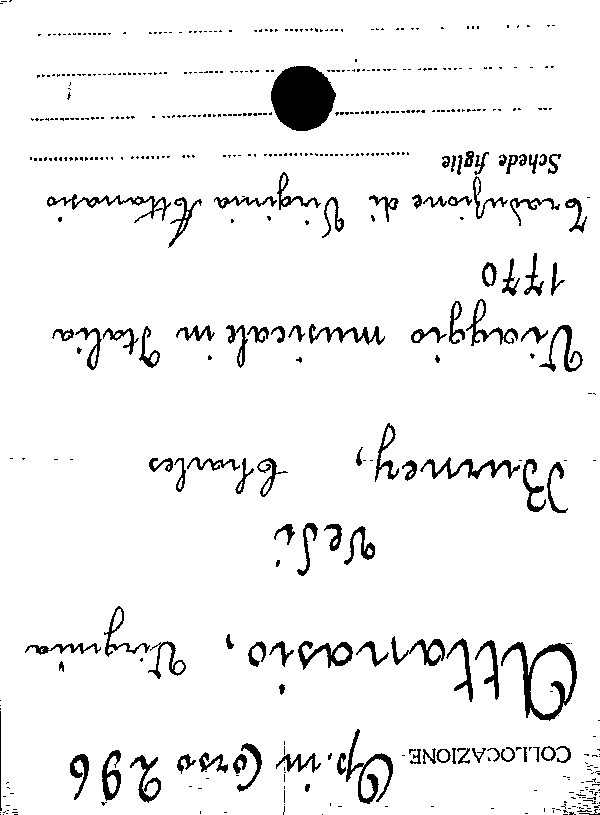 COLLOCAZIONE Op. in Corso 296
Attanasio, Virginia
vedi
Burney, Charles
Viaggio musicale in Italia
1770
Traduzione di Virginia Attanasio
Schede figlie